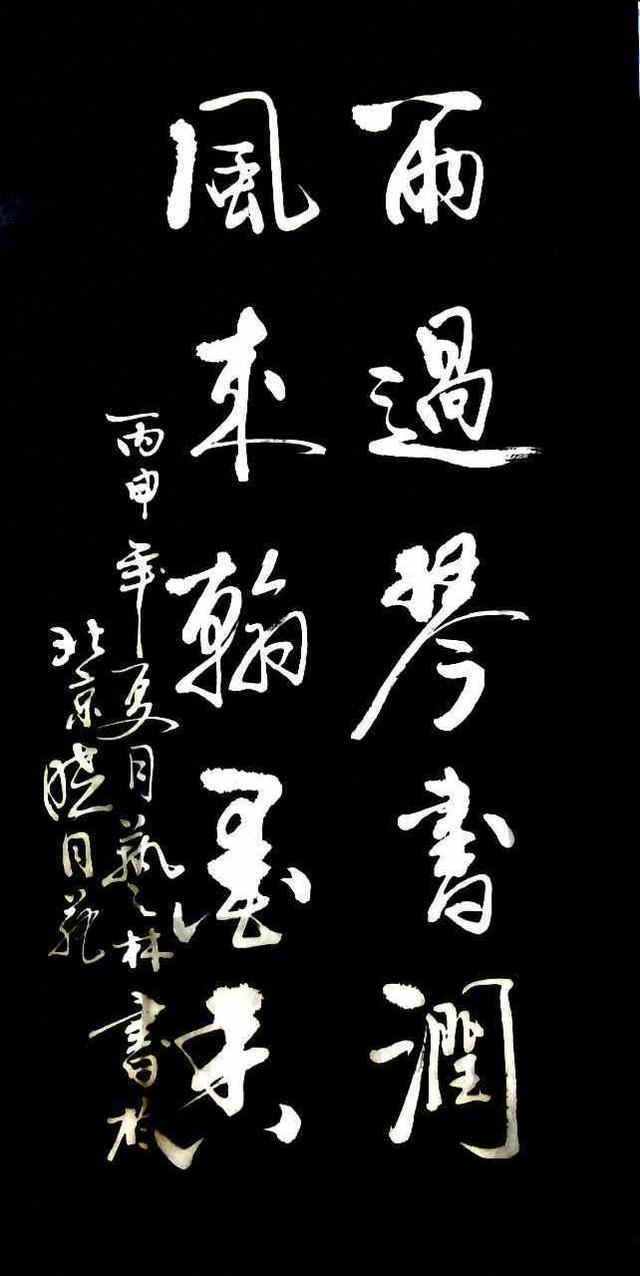 雨過琴書潤
風來翰墨香
丙申年夏月藝林書於
北京曉月苑